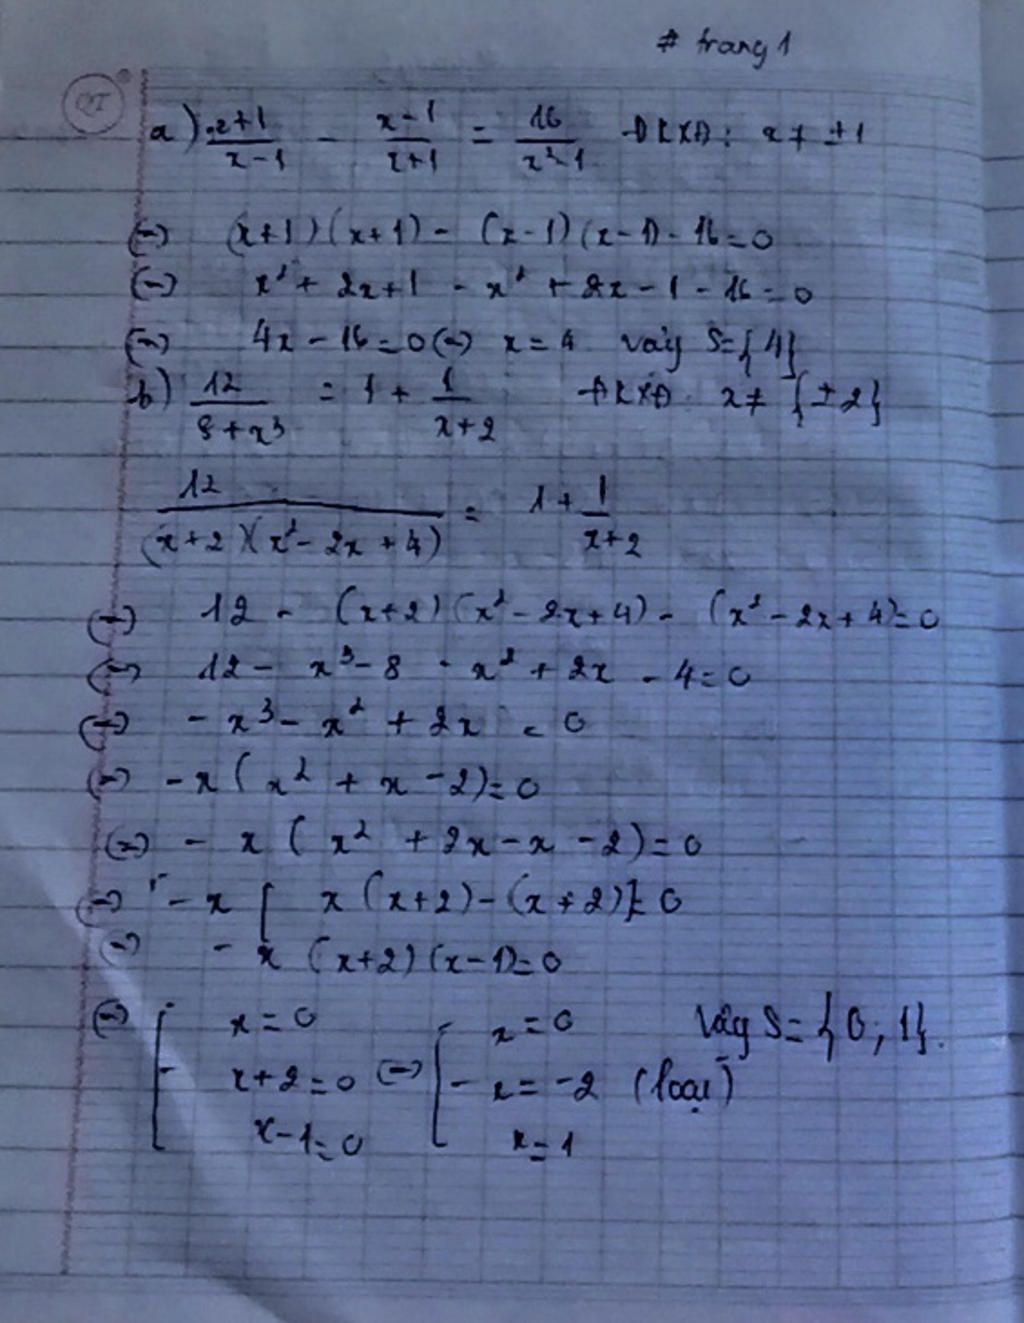 # trang 1
a) \frac{x+1}{x-1} - \frac{x-1}{x+1} = \frac{16}{x²-1} ĐKXĐ: x ≠ ±1
(=) (x+1)(x+1) - (x-1)(x-1) - 16 = 0
(=) x² + 2x+1 - x² + 2x - 1 - 16 = 0
(=) 4x - 16 = 0 (=) x = 4 Vậy S={4}
b) \frac{12}{8+x³} = 1 + \frac{1}{x+2} ĐKXĐ: x ≠ {±2}
\frac{12}{(x+2)(x²-2x+4)} = 1 + \frac{1}{x+2}
(=) 12 - (x+2)(x²-2x+4) - (x²-2x+4)=0
(=) 12 - x³-8 - x² + 2x - 4=0
(=) -x³- x² + 2x = 0
(=) -x(x² + x -2)=0
(=) - x (x² + 2x - x - 2)=0
(=) - x [x(x+2)-(x+2)]=0
(=) - x (x+2)(x-1)=0
(=) [ x=0 (=) [ x=0 Vậy S={0;1}.
x+2=0 x=-2 (loại)
x-1=0 x=1